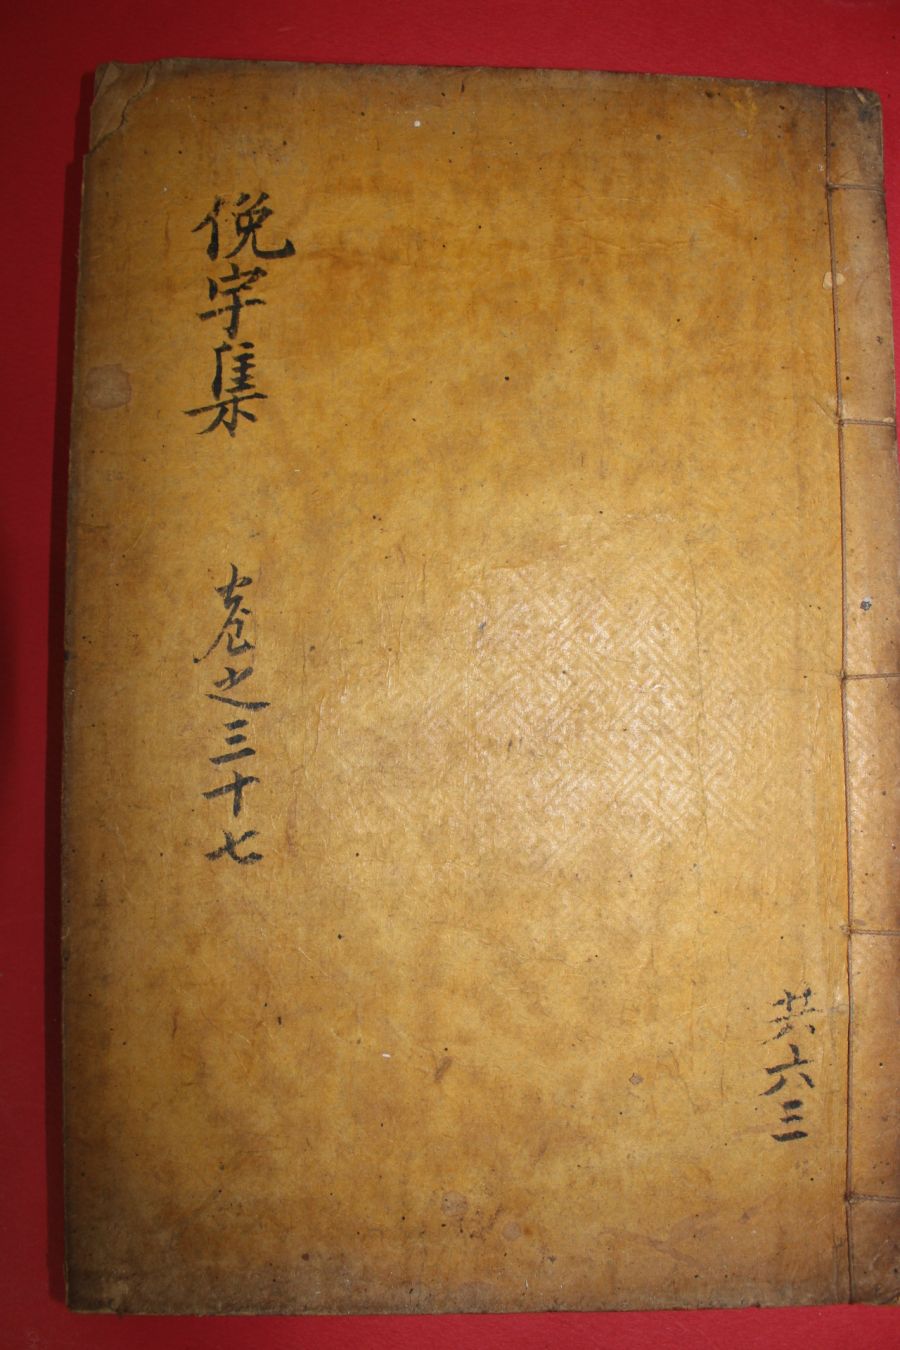 俛宇集
卷之三十七
共六三